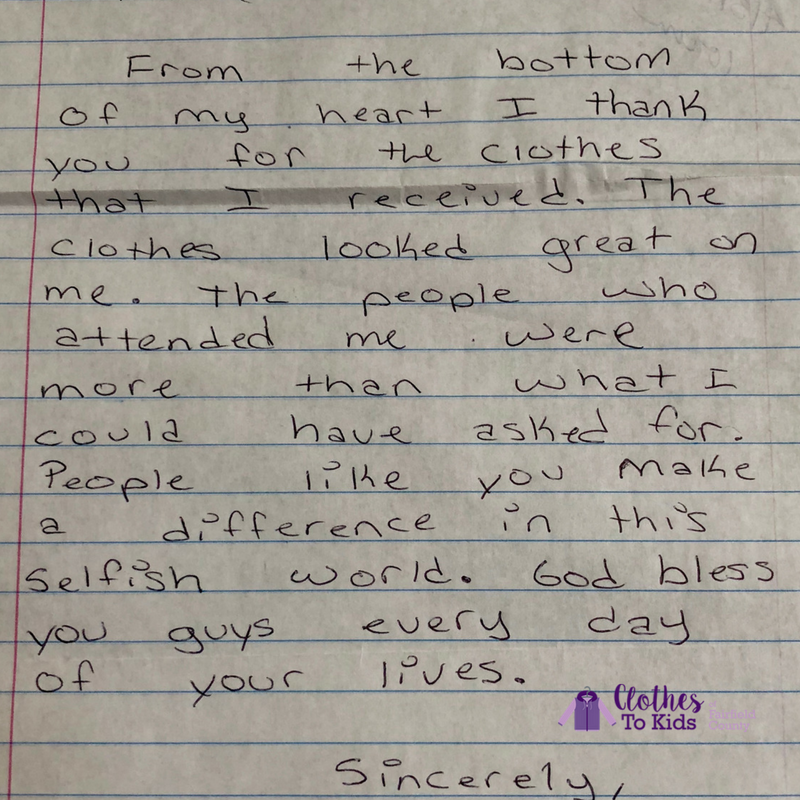 From the bottom
of my heart I thank
you for the clothes
that I received. The
clothes looked great on
me. The people who
attended me were
more than what I
could have asked for.
People like you make
a difference in this
selfish world. God bless
you guys every day
of your lives.
Clothes
To Kids
Sincerely,